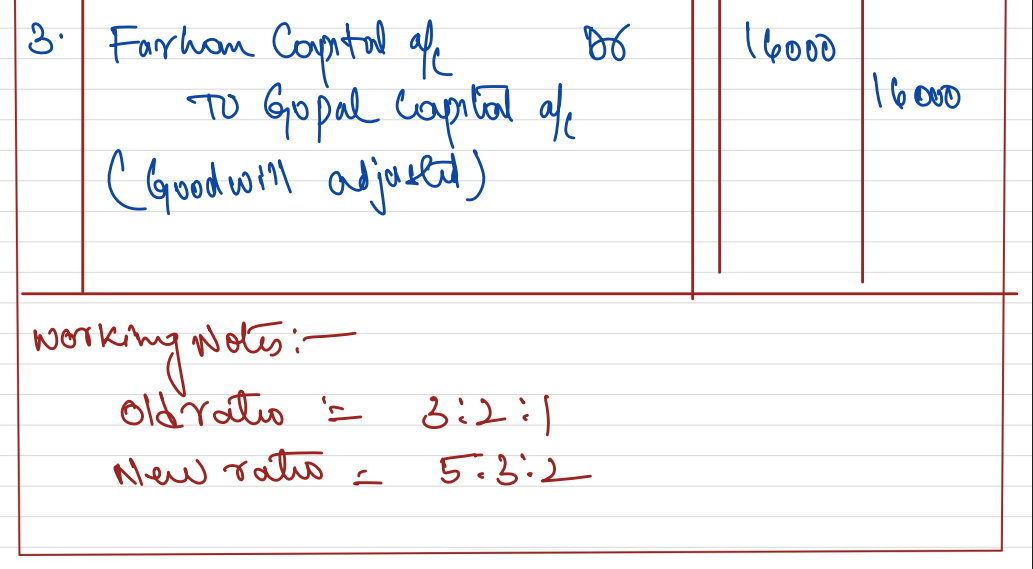 3. Farhan Capital a/c Dr 16000
To Gopal Capital a/c 16000
(Goodwill adjusted)
Working Notes:-
Old ratio = 3:2:1
New ratio = 5:3:2